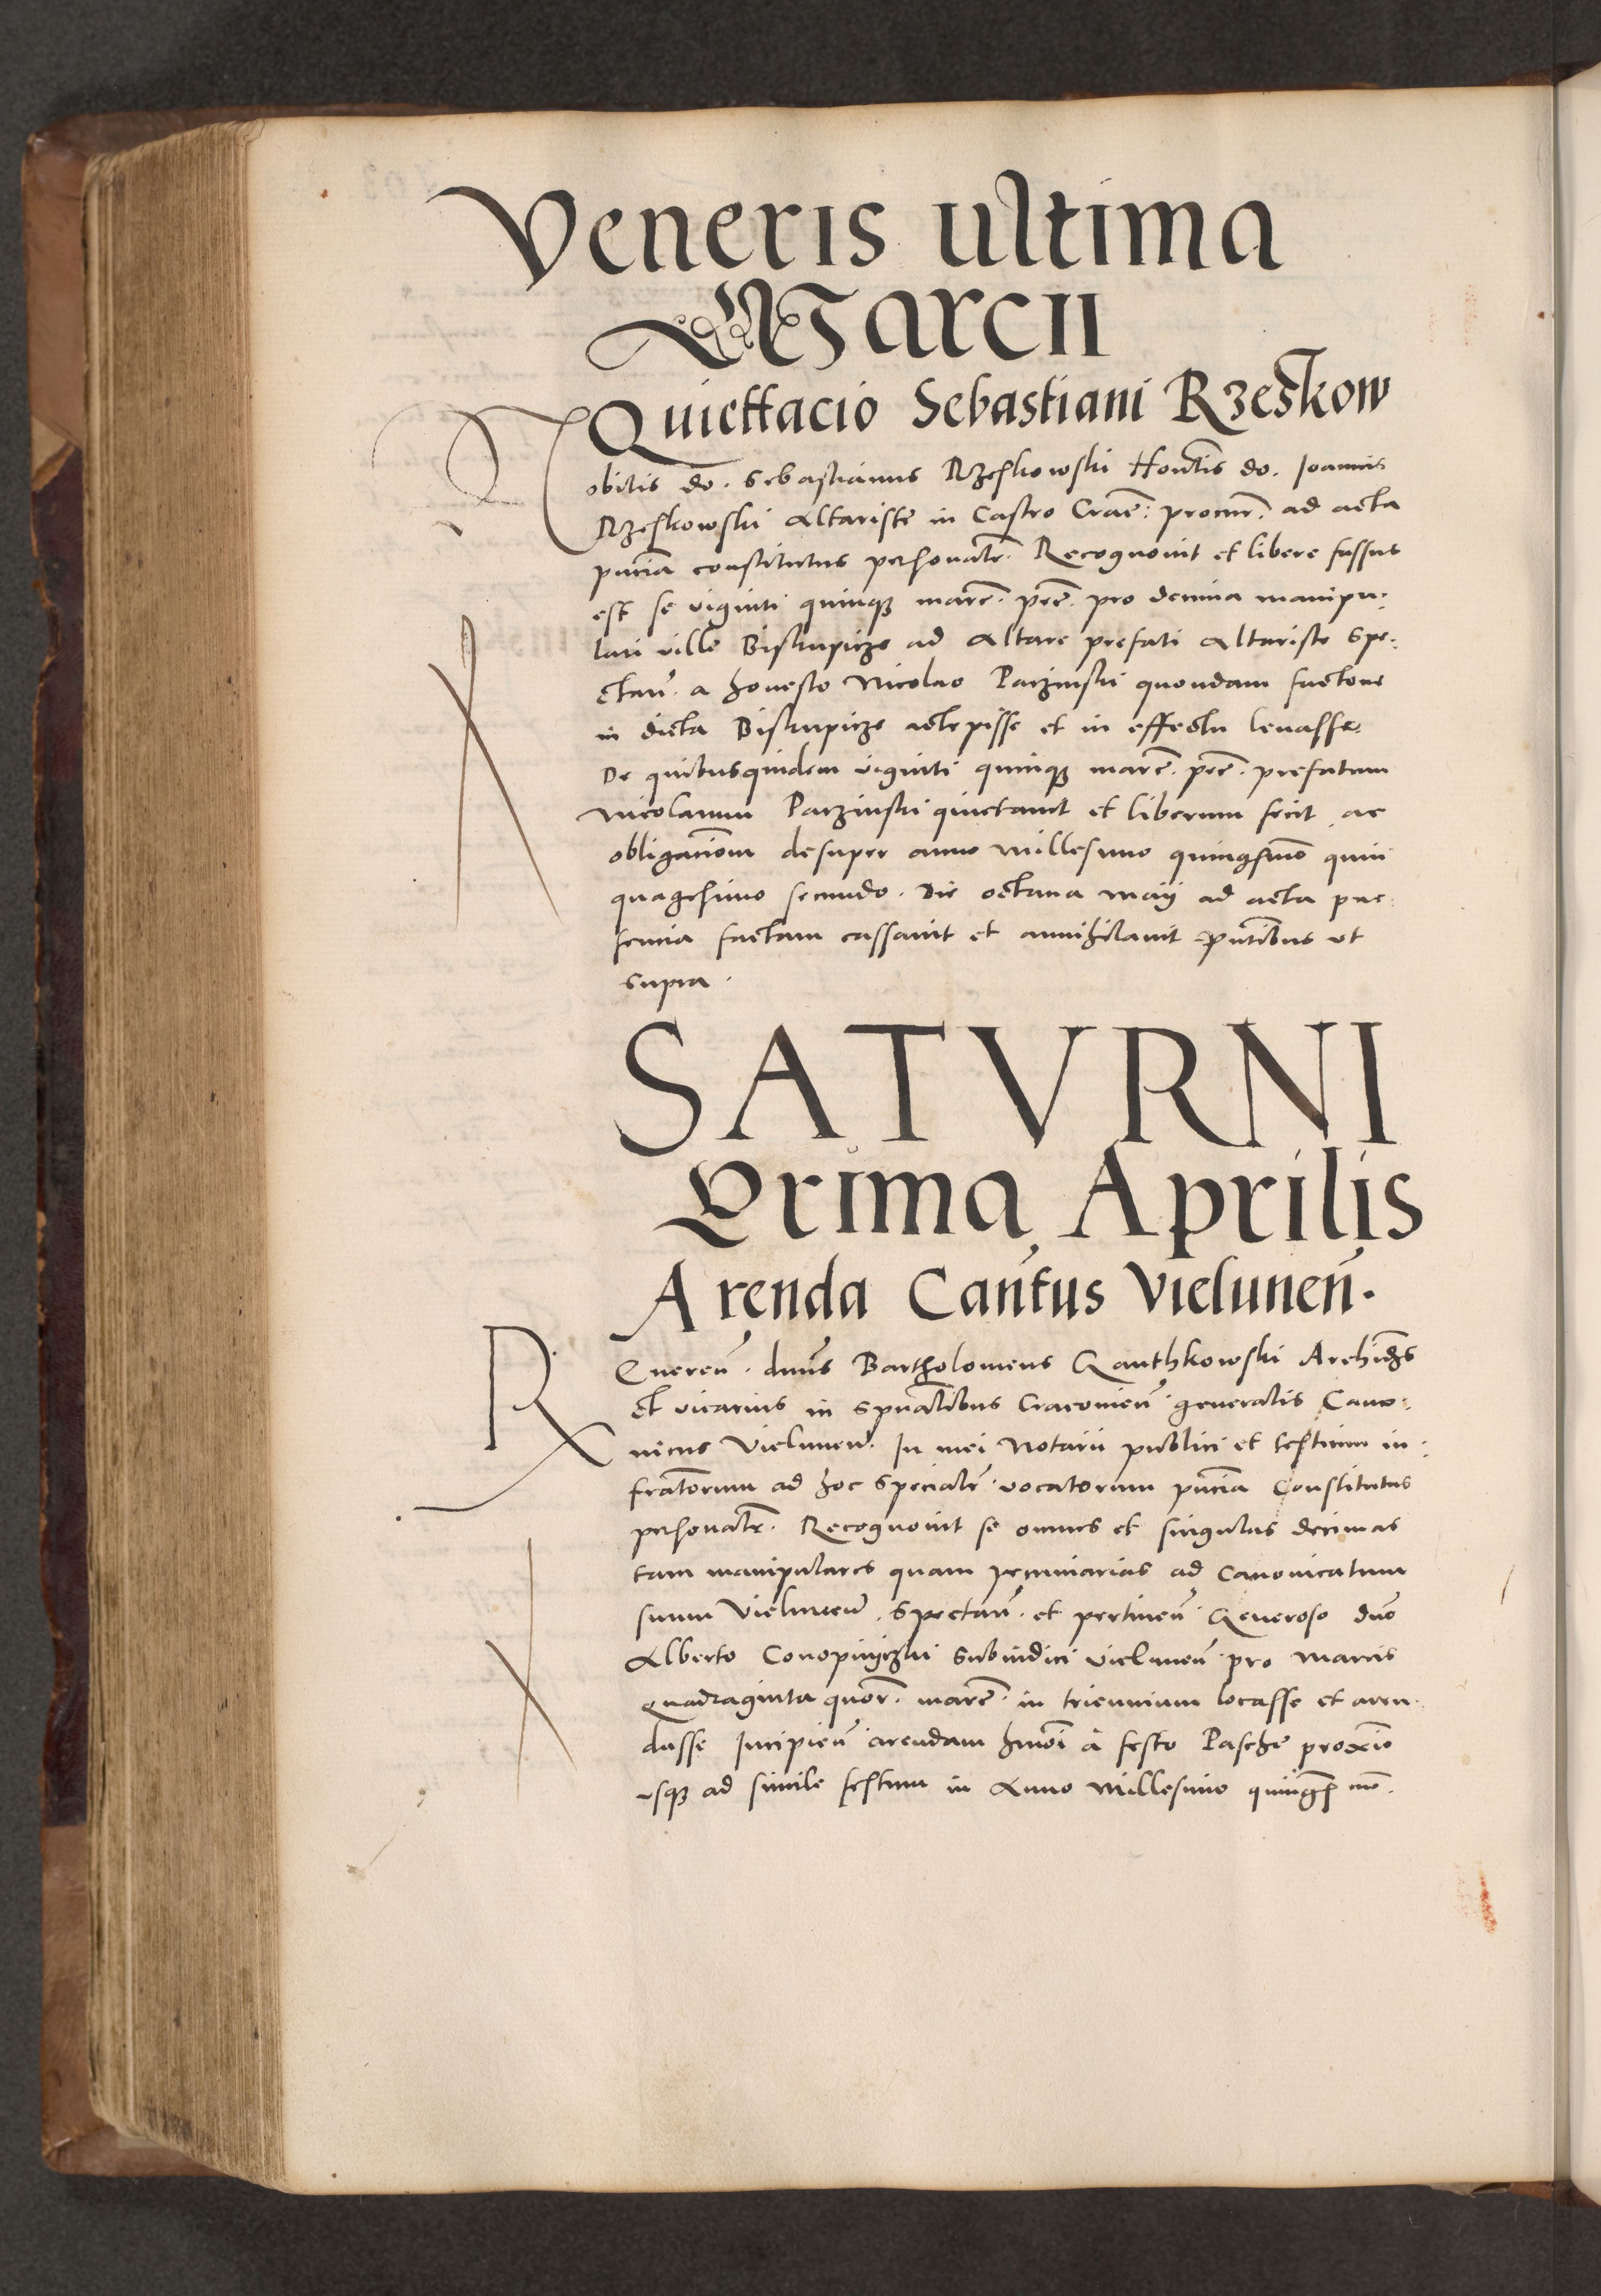 Veneris ultima
Marcii
Quiettacio Sebastiani Rzeskow
Nobilis do. Sebastianus Rzeskowski Hon̄lis do. Joannis
Rzeskowski Altariste in Castro Crac̄: procur̄. ad acta
pn̄cia constitutus personalr̄. Recognouit et libere fassus
est se viginti quinqꝫ marc̄. pec̄. pro decima manipu:
lari ville Biskupicze ad Altare prefati Altariste Spe:
ctan̄. a honesto Nicolao Parzinski quondam factore
in dicta Biskupicze accepisse et in effectu leuasse.
De quibusquidem viginti quinqꝫ marc̄. pec̄. prefatum
Nicolaum Parzinski quietauit et liberum fecit, ac
obligacionē desuper anno Millesimo quingesimo quin
quagesimo secundo. Die octaua Maij ad acta pre:
sencia factam cassauit et annihilauit pn̄tibus vt
supra.
SATVRNI
Prima Aprilis
Arenda Canťus Vielunen̄.
R
Eueren̄. dnūs Bartholomeus Ganthkowski Archidꝫs
et vicarius in Spūalibus Cracouien̄ generalis Cano:
nicus Vielunen̄. In mei Notarii publici et testium in:
frāторum ad hoc Specialr̄ vocatorum pn̄cia Constitutus
personalr̄. Recognouit se omnes et singulas decimas
tam manipulares quam pecuniarias ad Canonicatum
suum Vielunen̄. Spectan̄. et pertinen̄ Generoso dn̄o
Alberto Conopniczki Subiudici vielunen̄ pro marcis
quadraginta quor̄. marc̄. in triennium locasse et aren:
dasse Incipien̄ arendam hm̄oi à festo Pasche proximo
vsqꝫ ad simile festum in Anno Millesimo quingesmo.